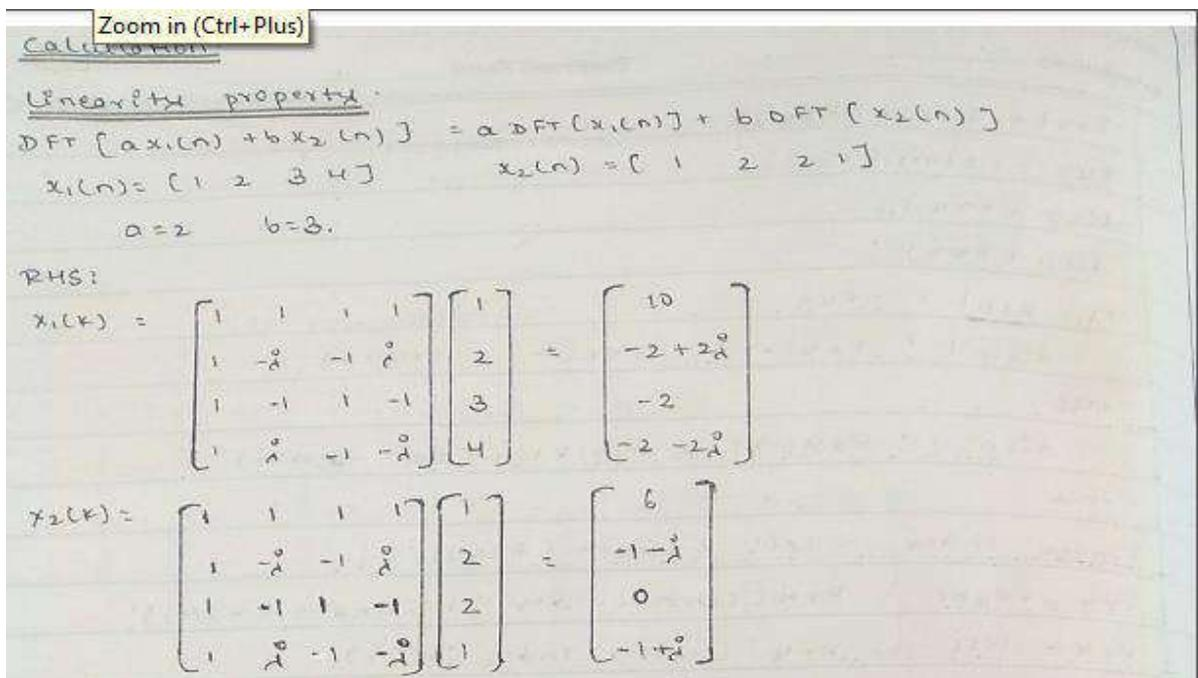 Zoom in (Ctrl+Plus)
Calculation
Linearity property.
DFT [ax₁(n) + bx₂(n)] = a DFT (x₁(n)] + b DFT (x₂(n)]
x₁(n) = [1 2 3 4] x₂(n) = [1 2 2 1]
a = 2 b = 3.
RHS:
X₁(k) = [1 1 1 1] [1] = [10]
[1 -j -1 j] [2] [-2+2j]
[1 -1 1 -1] [3] [-2]
[1 j -1 -j] [4] [-2-2j]
X₂(k) = [1 1 1 1] [1] = [6]
[1 -j -1 j] [2] [-1-j]
[1 -1 1 -1] [2] [0]
[1 j -1 -j] [1] [-1+j]